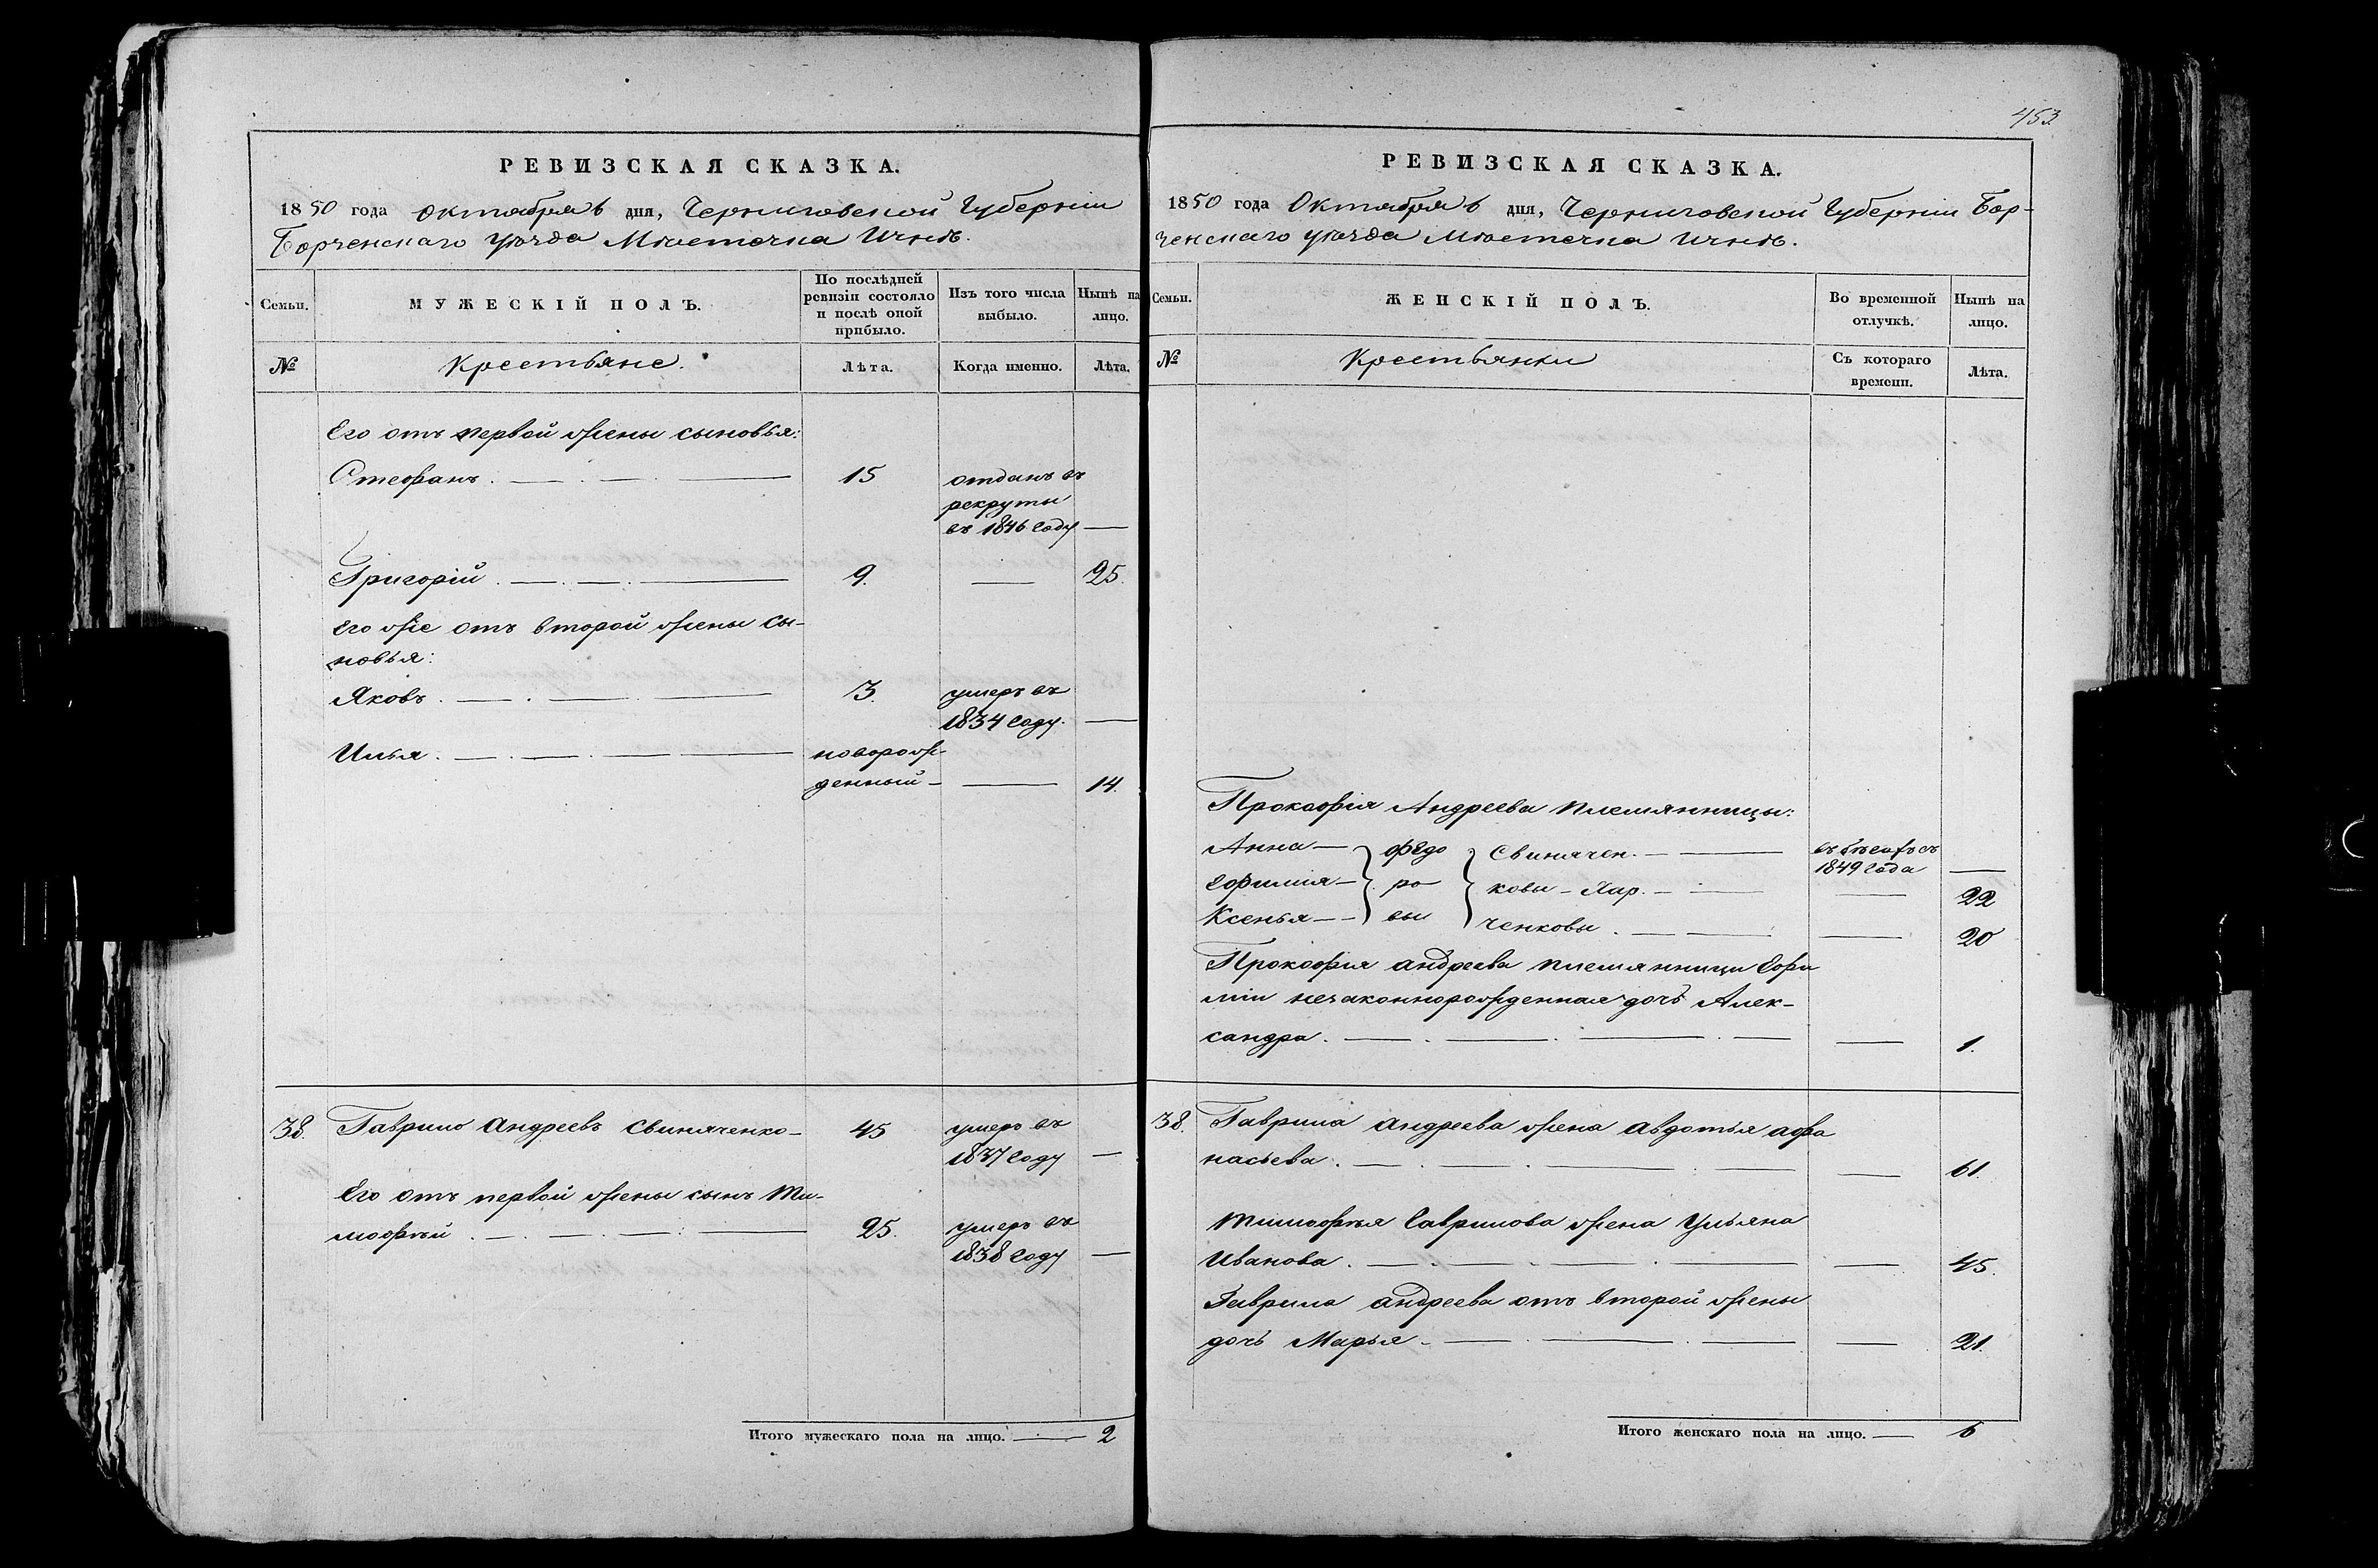 РЕВИЗСКАЯ СКАЗКА.
1850 года Октября 6 дня, Черниговской Губерніи
Борченскаго уѣзда Мѣстечка Ичнѣ.
Семьи.
МУЖЕСКІЙ ПОЛЪ.
По послѣдней
ревизіи состояло
и послѣ оной
прибыло.
Изъ того числа
выбыло.
Нынѣ на
лицо.
№
Крестьяне.
Лѣта.
Когда именно.
Лѣта.
Его отъ первой жены сыновья:
Стефанъ. 15 отданъ въ
рекруты
въ 1846 году —
Григорій. 9. — 25.
Его же отъ второй жены сы-
новья:
Яковъ. 3. умеръ въ
1834 году. —
Илья. новорож-
денный — — 14.
38. Гаврило Андреевъ Свиняченко — 45 умеръ въ
1837 году —
Его отъ первой жены сынъ Ти-
мофѣй. 25. умеръ въ
1838 году —
Итого мужескаго пола на лицо. — 2
453
РЕВИЗСКАЯ СКАЗКА.
1850 года Октября 6 дня, Черниговской Губерніи Бор-
ченскаго уѣзда Мѣстечка Ичнѣ.
Семьи.
ЖЕНСКІЙ ПОЛЪ.
Во временной
отлучкѣ.
Нынѣ на
лицо.
№
Крестьянки
Съ котораго
времени.
Лѣта.
Прокофія Андреева племянницы:
Анна — Федо Свинячен. — въ бѣгахъ съ
1849 года —
Ефимія — ро ковы — Хар. — — 22
Ксенья — вы ченковы. — — 20
Прокофія Андреева племянници Ефи
міи незаконнорожденная дочь Алек-
сандра. — 1.
38. Гаврила Андреева жена Авдотья Афа
насьева. — 61.
Тимофѣя Гаврилова жена Ульяна
Иванова. — 45.
Гаврила Андреева отъ второй жены
дочь Марья — 21.
Итого женскаго пола на лицо. — 6